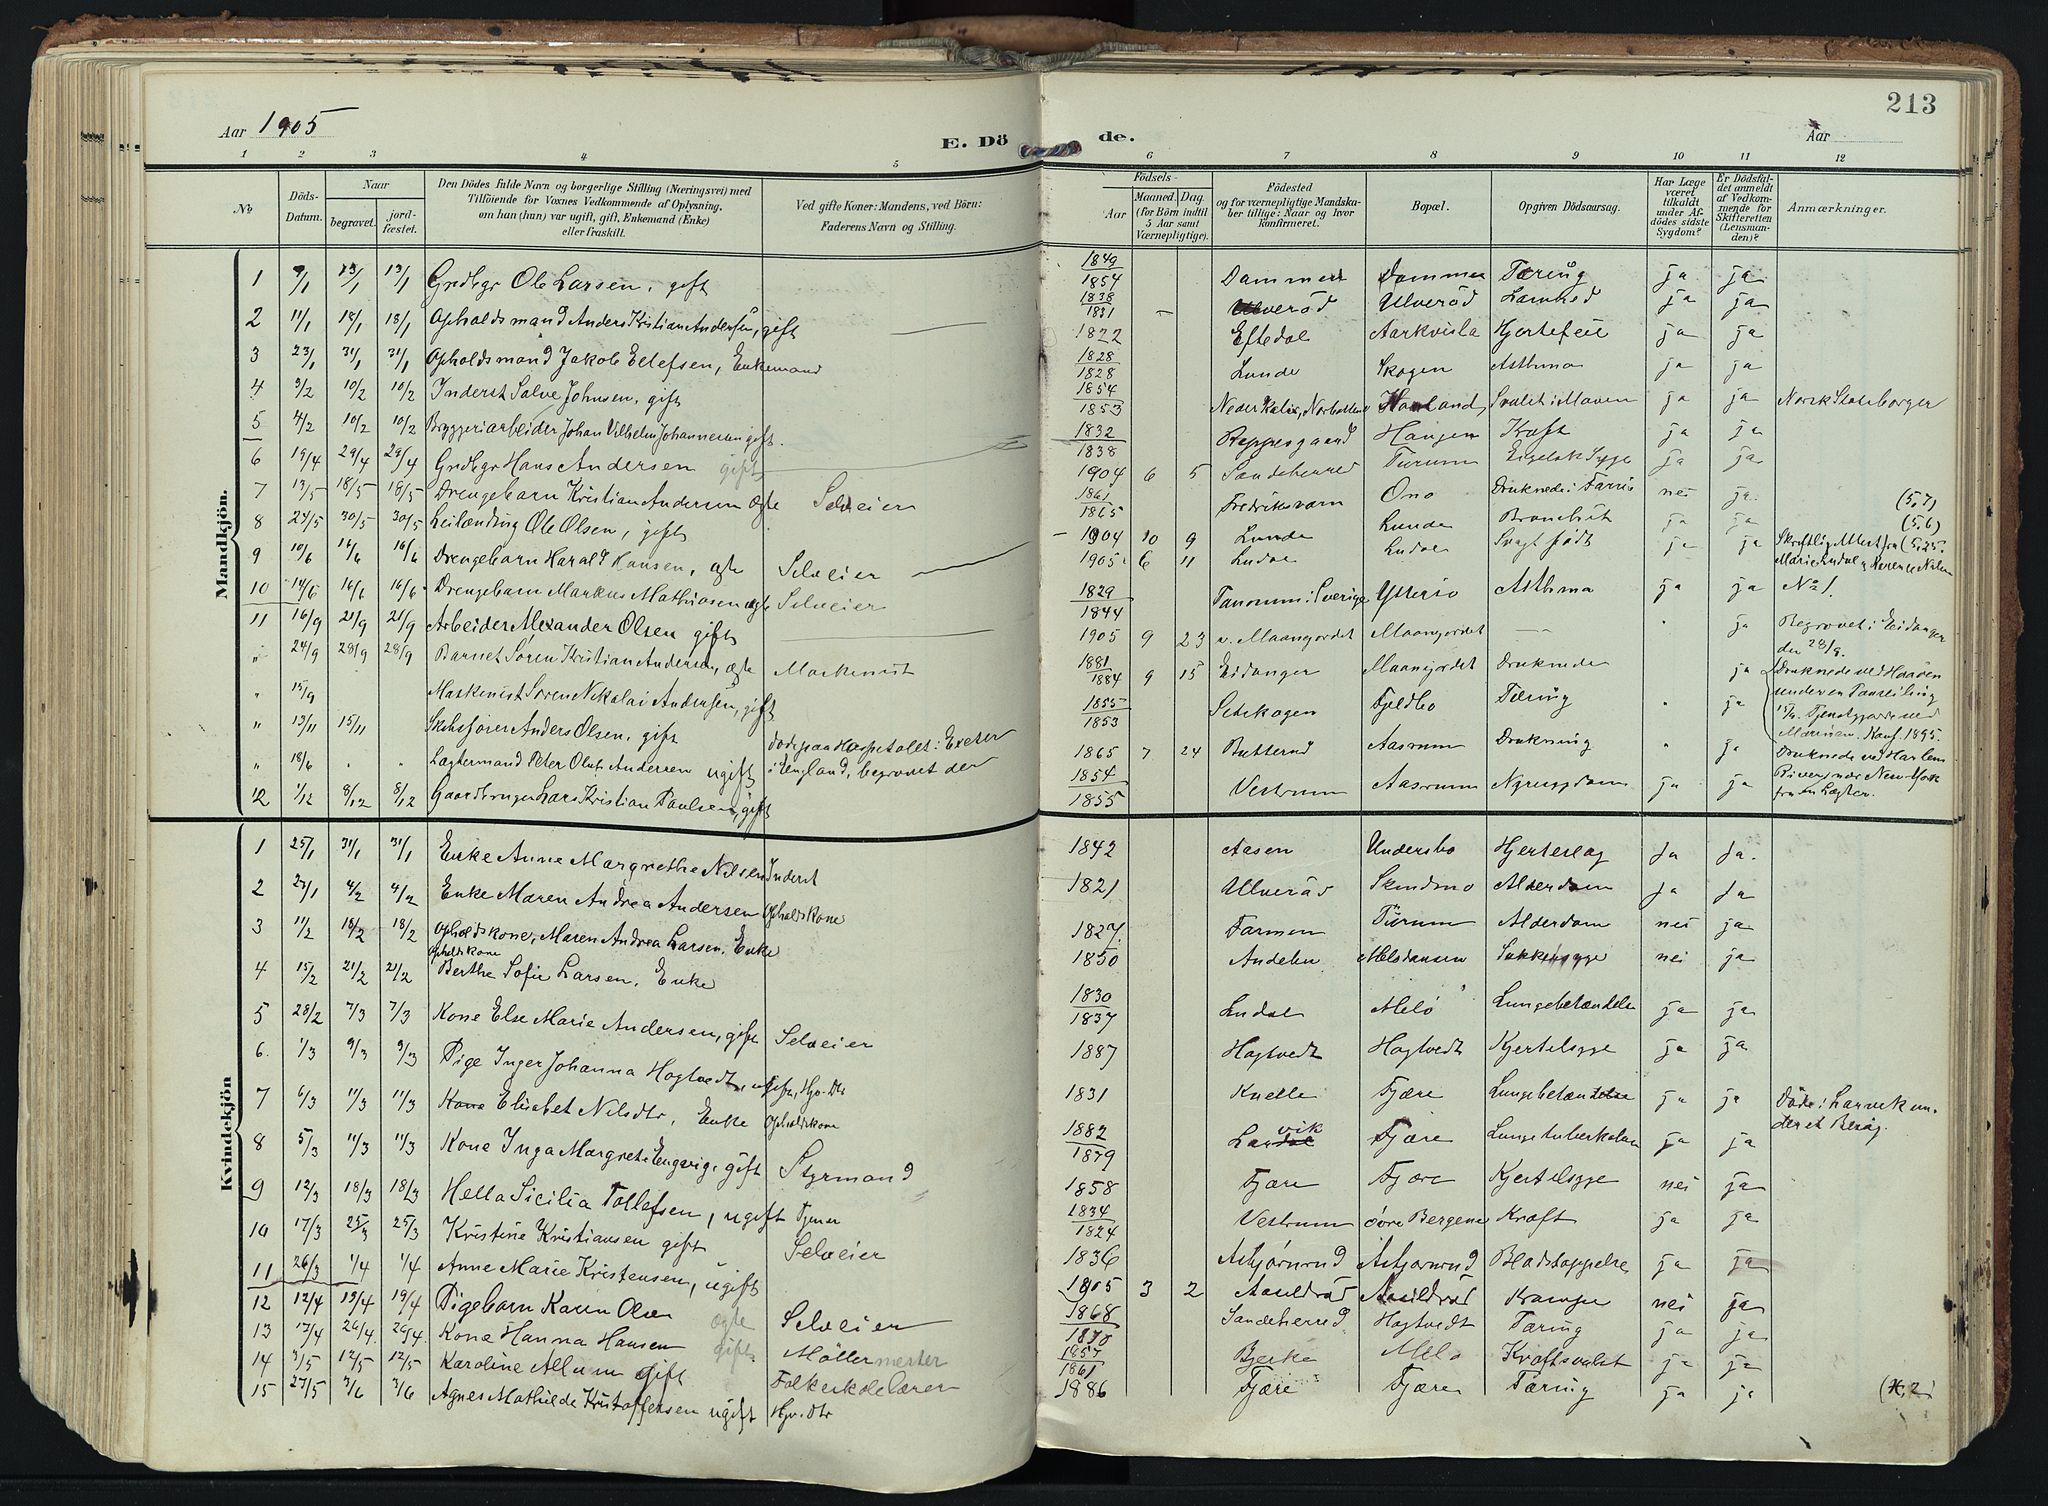 213
Aar 1905
E. Dö de.
Aar
1 2 3 4 5 6 7 8 9 10 11 12
№
Döds-Datum.
Naar
begravet.
jord-fæstet.
Den Dödes fulde Navn og borgerlige Stilling (Næringsvei) med
Tilföiende for Voxnes Vedkommende af Oplysning,
om han (hun) var ugift, gift, Enkemand (Enke)
eller fraskilt.
Ved gifte Koner: Mandens, ved Börn:
Faderens Navn og Stilling.
Födsels-
Aar
Maaned. Dag.
(for Börn indtil
5 Aar samt
Værnepligtige).
Födested
og for værnepligtige Mandska-
ber tillige: Naar og hvor
konfirmeret.
Bopæl.
Opgiven Dödsaarsag.
Har Læge
været
tilkaldt
under Af-
dödes sidste
Sygdom?
Er Dödsfal-
det anmeldt
af Vedkom-
mende for
Skifteretten
(Lensman-
den)?
Anmærkninger.
Mandkjön.
1 9/1 13/1 13/1 Grdbgr Ole Larsen, gift 1849 1854 Dammen Dammen Tæring ja ja
2 11/1 18/1 18/1 Opholdsmand Anders Kristian Andersen, gift 1838 1831 Ulveröd Ulveröd ja ja
3 23/1 31/1 31/1 Opholdsmand Jakob Ellefsen, Enkemand 1822 Eftedal Aarkvisla Hjertefeil ja ja
4 3/2 10/2 10/2 Inderst Salve Johnsen, gift 1828 1828 Lunde Skogen Asthma ja ja
5 4/2 10/2 10/2 Bryggeriarbeider Johan Vilhelm Johannesen gift. 1854 1853 Neder Kalix, Norbotten Haaland Svulst i Maven ja ja Norsk Statsborger
6 19/4 29/4 29/4 Grdbgr Hans Andersen gift 1832 1838 Haugen Kræft ja ja
7 13/5 18/5 18/5 Drengebarn Kristian Andersen ægte Selveier 1904 6 5 Sandeherred Turum Engelsk Syge ja ja
8 24/5 30/5 30/5 Leilænding Ole Olsen, gift 1861 1865 Fredriksværn Ono Druknede i Farris nei ja (5,7)
9 10/6 16/6 16/6 Drengebarn Harald Hansen, ægte Selveier 1904 10 9 Lunde Lunde ja (5,6)
10 14/6 16/6 16/6 Drengebarn Markus Mathiasen ægte Selveier 1905 6 11 Ludal Ludal Svagt født ja ja
11 16/9 21/9 21/9 Arbeider Alexander Olsen gift 1829 1844 Tanum i Sverige Ytterso Asthma ja ja No 1.
" 24/9 28/9 28/9 Barnet Sören Kristian Andersen, ægte Maskenist 1905 9 23 Maangjordet Maangjordet — ja Begravet i Eidanger
den 28/9.
" 15/9 Maskenist Sørene Nikolai Andersen, gift 1881 1884 9 15 Eidanger Maangjordet Druknede ja
" 13/11 15/11 Skibsfører Anders Olsen, gift 1855 1853 Setskogen Fjeldbo Tæring " ja
" 18/6 " " Lægtermand Peter Oluf Andersen ugift Døde paa Hospitalet i Exeter
i England, begravet der 1865 7 24 Butterud Aasrum Drukning " ja Druknede ved Harlem
River nær New York
fra en Lægter.
12 1/12 8/12 8/12 Gaardbruger Lars Kristian Paulsen, gift 1854 1855 Vestrum Aasrum ja ja
Kvindekjön
1 25/1 31/1 31/1 Enke Anne Margrethe Nilsen Inderst 1842 Aasen Undersbo Hjerteslag ja ja.
2 27/1 4/2 4/2 Enke Maren Andrea Andersen Opholdskone 1821 Ulveröd Skindmo Alderdom ja ja
3 11/2 18/2 18/2 Opholdskone, Maren Andrea Larsen, Enke 1827. Farmen Turum Alderdom nei ja
4 15/2 21/2 21/2 Opholdskone Berthe Sofie Larsen, Enke 1850 Melsdansen Sukkersyge nei ja
5 28/2 7/3 7/3 Kone Else Marie Andersen, gift Selveier 1830 1837 Ludal Melö Lungebetændelse ja ja
6. 1/3 9/3 9/3 Pige Inger Johanna Hogtvedt, ugift, Hjv. Dtr 1887 Hogtvedt Hogtvedt Kjertelsyge ja ja
7 6/3 11/3 11/3 Kone Elisabet Nilsdtr, Enke Opholdskone 1831 Kvelle Fjære Lungebetændelse ja ja Döde i Larvik un-
der et Besøg.
8 5/3 11/3 11/3 Kone Inga Margrete Engevig, gift Styrmand 1882 1879 Larvik Fjære Lungetuberkulose ja ja
9 12/3 18/3 18/3 Hella Sicilia Tollefsen, ugift Tjener 1858 Fjære Fjære Kjertelsyge nei ja
10 17/3 25/3 25/3 Kristine Kristiansen gift Selveier 1834 1824 Vestrum övre Bergene Kræft ja ja
11 26/3 1/4 1/4 Anne Marie Kristensen, ugift 1836 Asbjørnrud Asbjørnrud Blodstoppelse ja ja
12 12/4 19/4 19/4 Pigebarn Karen Olsen ægte Selveier 1905 3 2 Aasildröd Aasildröd Krampe nei ja
13 17/4 26/4. 26/4. Kone Hanna Hansen gift Möllermester 1868 1870 Sandeherred Hogtvedt Tæring ja ja
14 3/5 12/5 12/5 Karoline Allum gift Folkeskolelærer 1857 1861 Bjerke Melö Kræftsvulst ja ja
15 27/5 3/6 3/6 Agnes Mathilde Kristoffersen ugift Hjv. Dtr 1886 Fjære Fjære Tæring ja ja